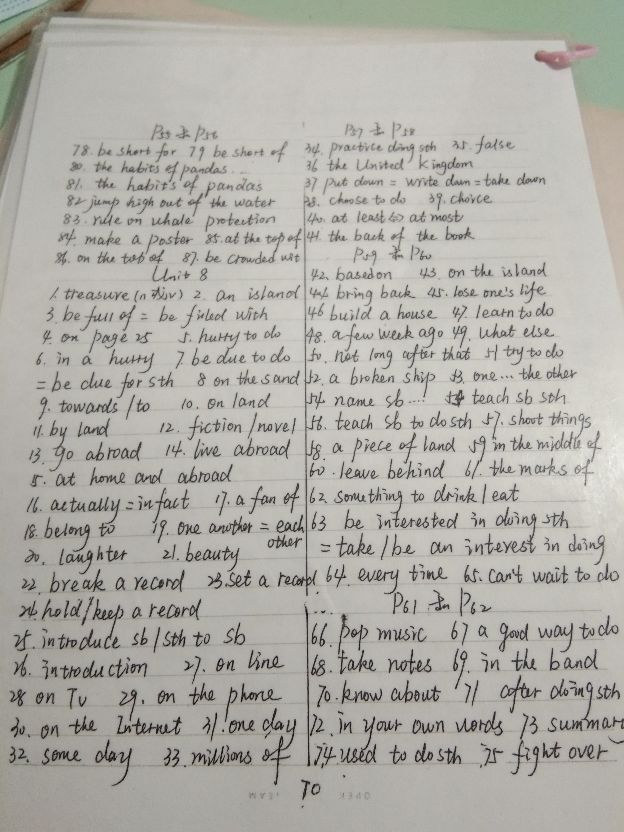 P55和P56
78. be short for 79 be short of
80. the habits of pandas...
81. the habits of pandas
82 jump high out of the water
83. rule on whale protection
84. make a poster 85. at the top of
86. on the top of 87. be crowded wit
Unit 8
1. treasure (n 不可v) 2. an island
3. be full of = be filled with
4. on page 25 5. hurry to do
6. in a hurry 7 be due to do
= be due for sth 8 on the sand
9. towards / to 10. on land
11. by land 12. fiction / novel
13. go abroad 14. live abroad
5. at home and abroad
16. actually = in fact 17. a fan of
18. belong to 19. one another = each other
20. laughter 21. beauty
22. break a record 23. set a record
24. hold / keep a record
25. introduce sb / sth to sb
26. introduction 27. on line
28 on TV 29. on the phone
30. on the Internet 31. one day
32. some day 33. millions of
P57和P58
34. practice doing sth 35. false
36 the United Kingdom
37 put down = write down = take down
38. choose to do 39. choice
40. at least ⇔ at most
41. the back of the book
P59和P60
42. based on 43. on the island
44. bring back 45. lose one's life
46 build a house 47. learn to do
48. a few week ago 49. what else
50. not long after that 51 try to do
52. a broken ship 53. one... the other
54. name sb...! 55 teach sb sth
56. teach sb to do sth 57. shoot things
58. a piece of land 59 in the middle of
60. leave behind 61. the marks of
62. something to drink / eat
63 be interested in doing sth
= take / be an interest in doing
64. every time 65. can't wait to do
... P61和P62
66. pop music 67 a good way to do
68. take notes 69. in the band
70. know about 71 after doing sth
72. in your own words 73 summary
74. used to do sth 75 fight over
TO